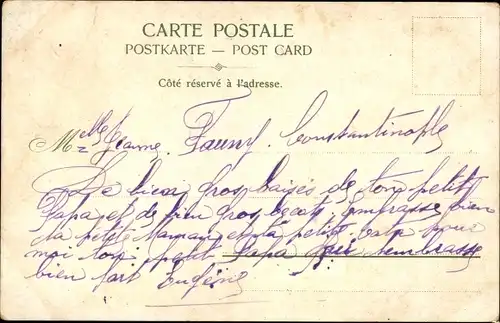 CARTE POSTALE
POSTKARTE — POST CARD
Côté réservé à l'adresse.
Melle Jeanne Fauny Constantinople
De bien gros baisés de ton petit
Papa et de bien gros becots. Embrasse bien
ta petite Maman et ta petite pour
moi ton petit Papa qui t'embrasse
bien fort Eugène